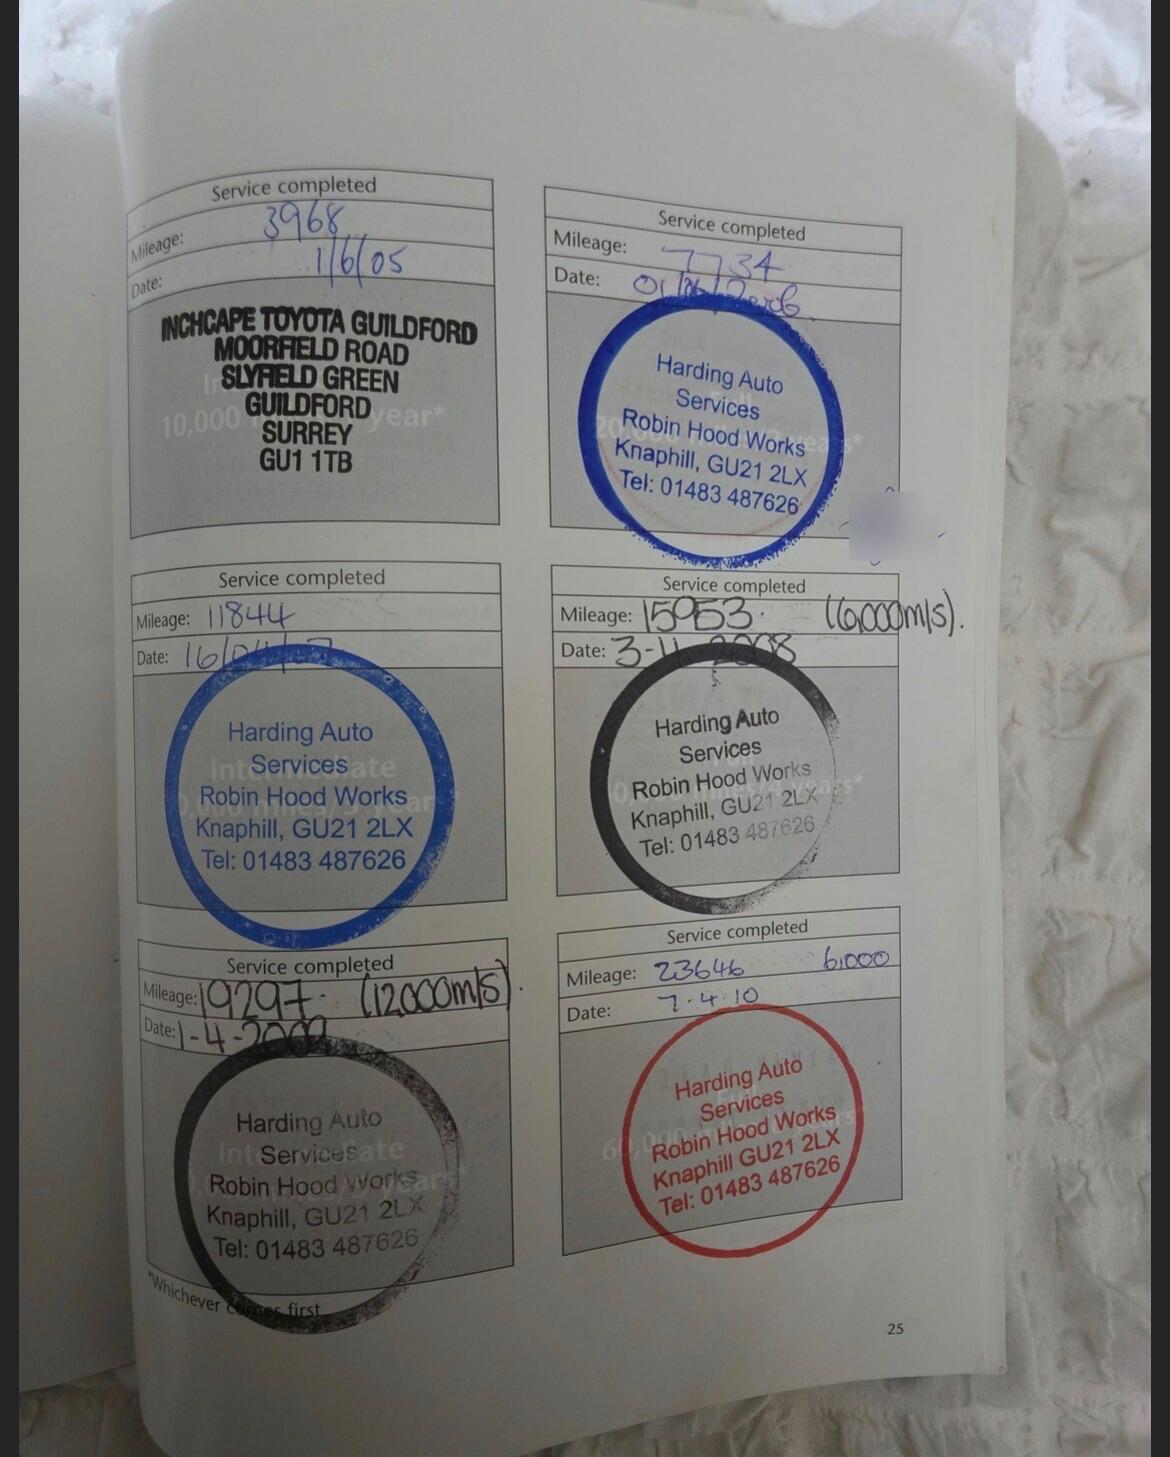 Service completed
Mileage: 3968
Date: 1/6/05
INCHCAPE TOYOTA GUILDFORD
MOORFIELD ROAD
SLYFIELD GREEN
GUILDFORD
SURREY
GU1 1TB
10,000 year*
Service completed
Mileage: 7734
Date:
Harding Auto
Services
Robin Hood Works
Knaphill, GU21 2LX
Tel: 01483 487626
Service completed
Mileage: 11844
Date: 16/04/07
Harding Auto
Services
Intermediate
Robin Hood Works
Knaphill, GU21 2LX
Tel: 01483 487626
Service completed
Mileage: 15953. (6,000m/s).
Date: 3-11-2008
Harding Auto
Services
Robin Hood Works
Knaphill, GU21 2LX
Tel: 01483 487626
Service completed
Mileage: 19297. (12000m/s).
Date: 1-4-2009
Harding Auto
Services
Robin Hood Works
Knaphill, GU21 2LX
Tel: 01483 487626
Service completed
Mileage: 23646 6,000
Date: 7.4.10
Harding Auto
Services
Robin Hood Works
Knaphill GU21 2LX
Tel: 01483 487626
*Whichever comes first
25